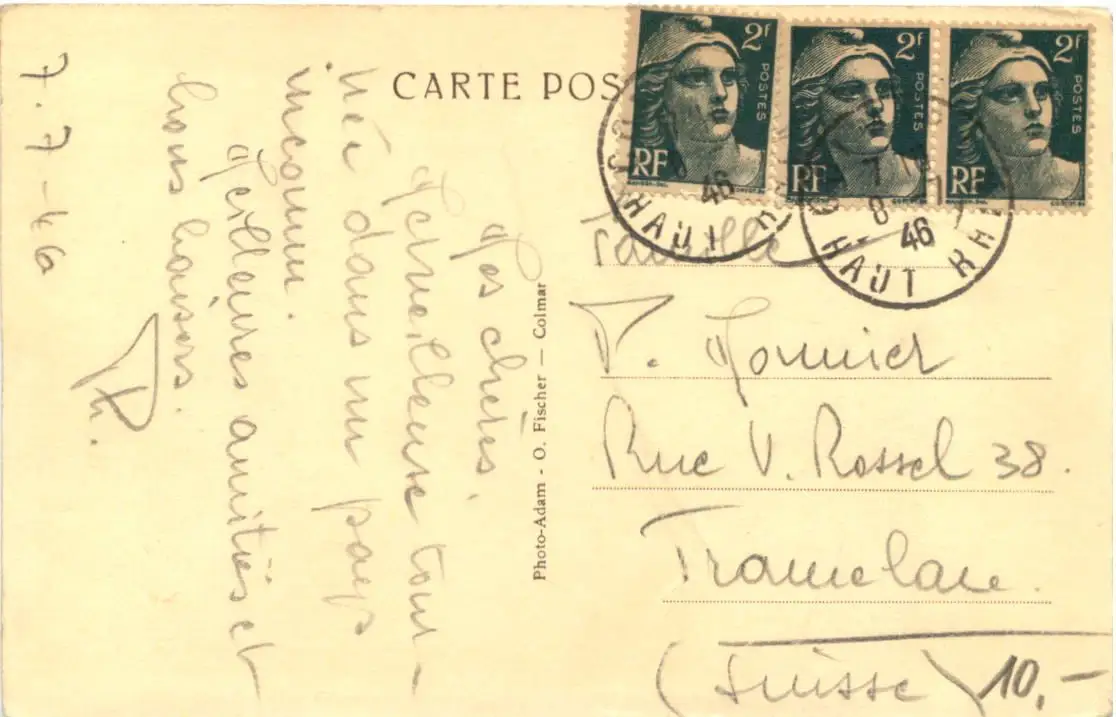 CARTE POS
7.7-46
Mes chères,
Merveilleuse tour-
née dans un pays
inconnu.
Meilleures amitiés et
bons baisers.
Th.
Photo-Adam - O. Fischer — Colmar
2F POSTES RF
2F POSTES RF
2F POSTES RF
46
HAUT
8
46
HAUT RH
Famille
Monnier
Rue V. Rossel 38.
Tramelan.
(Suisse)
10,-